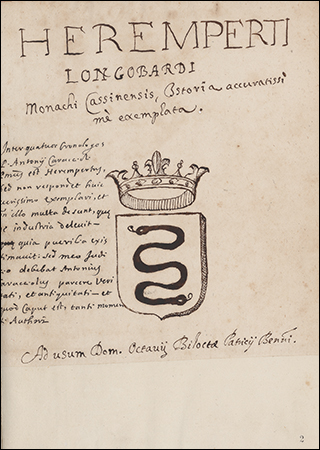 HEREMPERTI
LONGOBARDI
Monachi Cassinensis, Istoria accuratissi
mè exemplata.
Inter quatuor Cronologos
Antonij
est Herempertus,
sed non respondet huic
exemplari, et
in illo multa desunt, que
industria delevit
quia puerilia exis
timavit: sed meo Judi
o debebat Antonius
parcere Veri
tati, et antiquitati et
quod Caput est, tanti monu
ti Authori
Ad usum Dom. Octavij Bilottæ Patricij Benni.
2